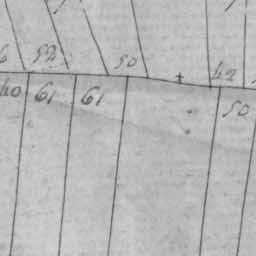 6 52 50 42
40 61 61 50